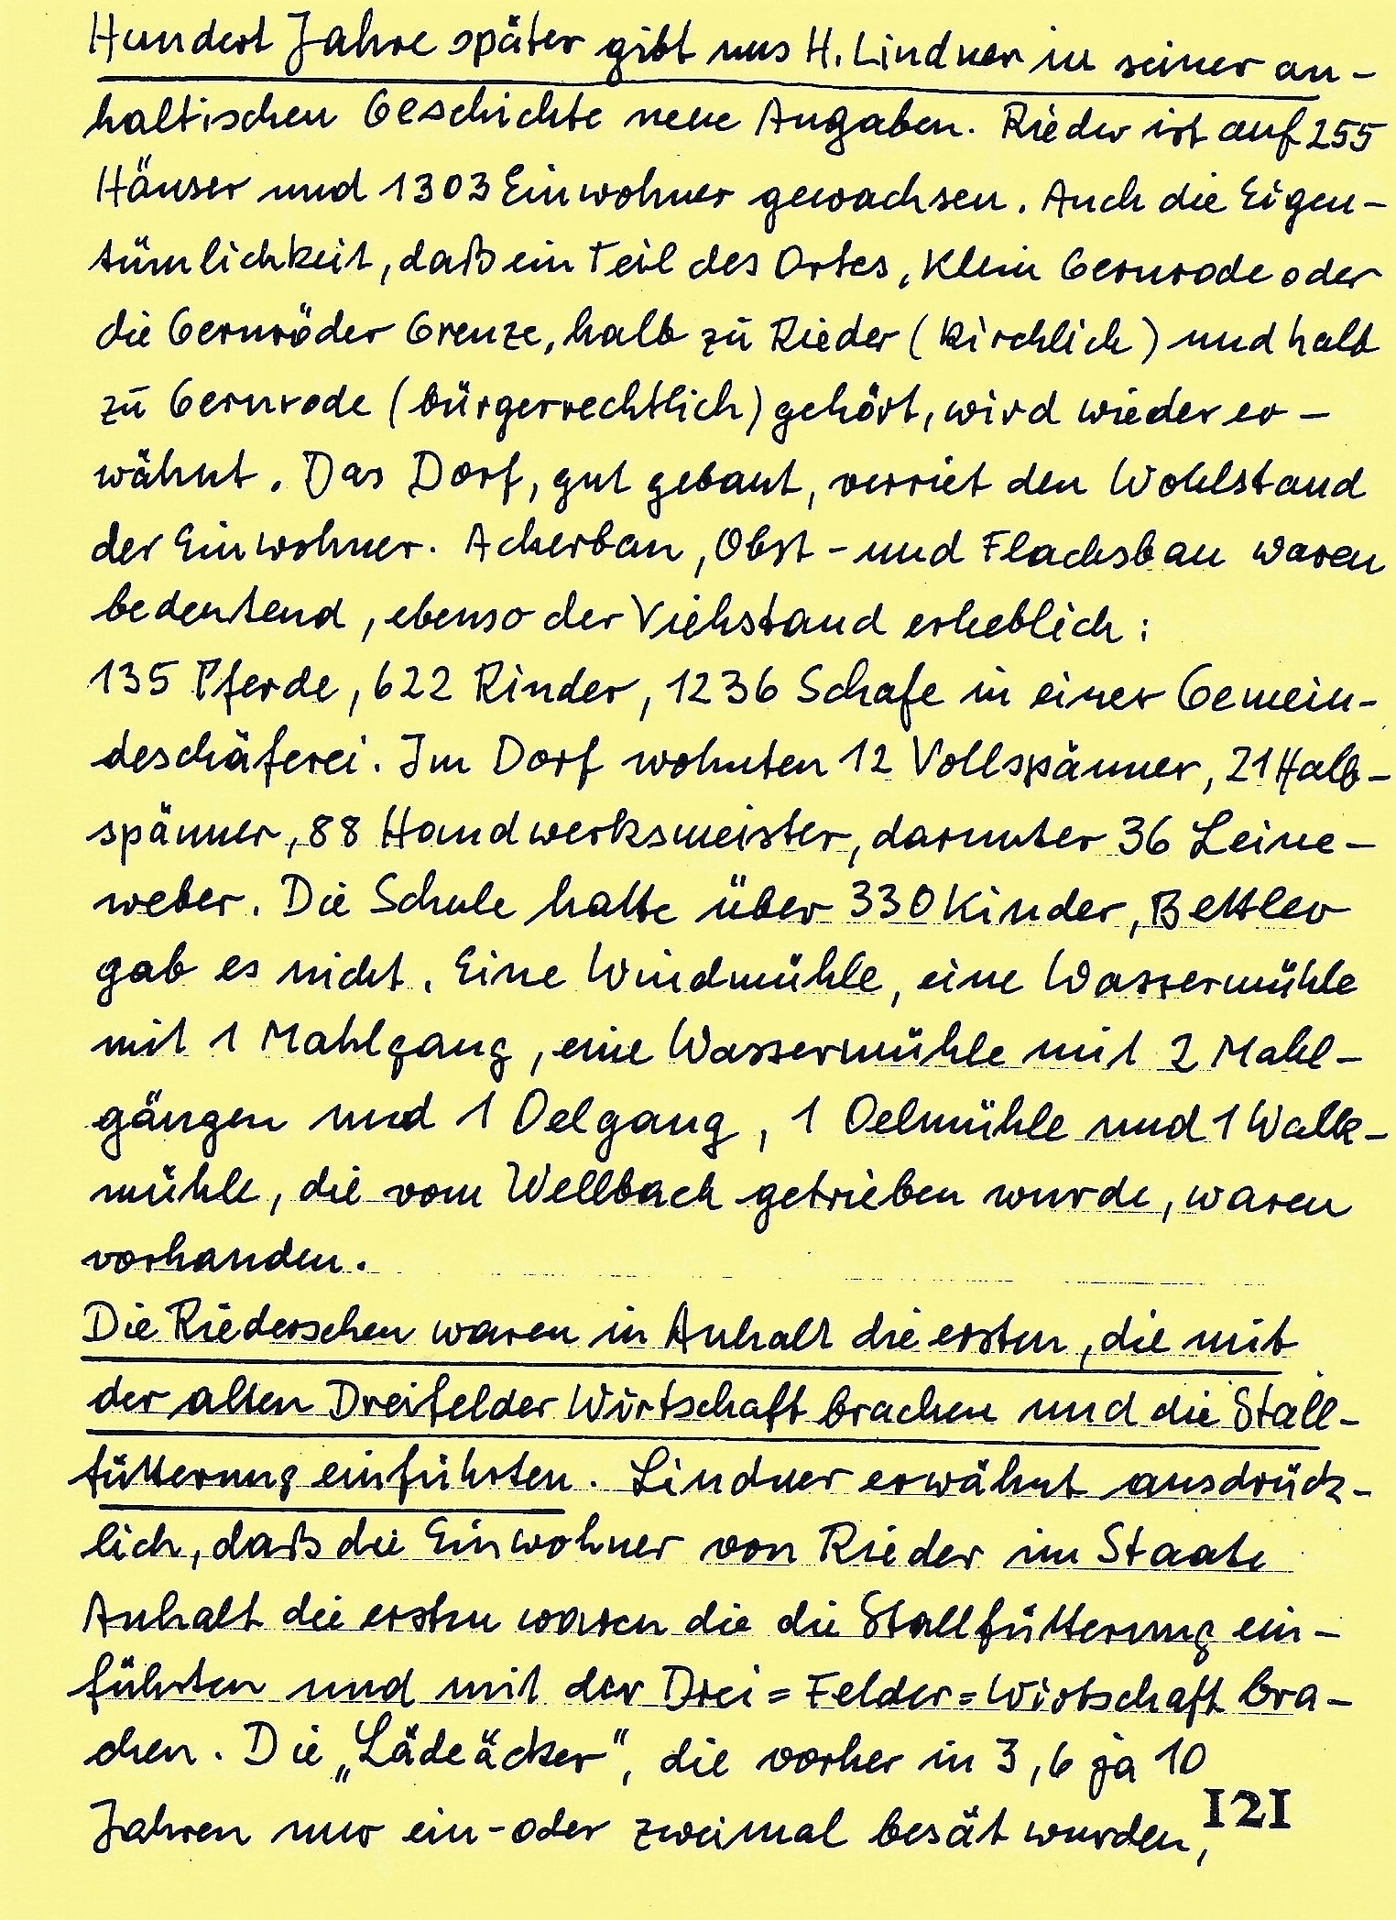 Hundert Jahre später gibt uns H. Lindner in seiner an-
haltischen Geschichte neue Angaben. Rieder ist auf 255
Häuser und 1303 Einwohner gewachsen. Auch die Eigen-
tümlichkeit, daß ein Teil des Ortes, Klein Gernrode oder
die Gernröder Grenze, halb zu Rieder (kirchlich) und halb
zu Gernrode (bürgerrechtlich) gehört, wird wieder er-
wähnt. Das Dorf, gut gebaut, verriet den Wohlstand
der Einwohner. Ackerbau, Obst- und Flachsbau waren
bedeutend, ebenso der Viehstand erheblich:
135 Pferde, 622 Rinder, 1236 Schafe in einer Gemein-
deschäferei. Im Dorf wohnten 12 Vollspänner, 21 Halb-
spänner, 88 Handwerksmeister, darunter 36 Leine-
weber. Die Schule hatte über 330 Kinder, Bettler
gab es nicht. Eine Windmühle, eine Wassermühle
mit 1 Mahlgang, eine Wassermühle mit 2 Mahl-
gängen und 1 Oelgang, 1 Oelmühle und 1 Walk-
mühle, die vom Wellbach getrieben wurde, waren
vorhanden.
Die Riederschen waren in Anhalt die ersten, die mit
der alten Dreifelder Wirtschaft brachen und die Stall-
fütterung einführten. Lindner erwähnt ausdrück-
lich, daß die Einwohner von Rieder im Staate
Anhalt die ersten waren die die Stallfütterung ein-
führten und mit der Drei=Felder=Wirtschaft bra-
chen. Die „Lädeäcker“, die vorher in 3, 6 ja 10
Jahren nur ein- oder zweimal besät wurden,
121